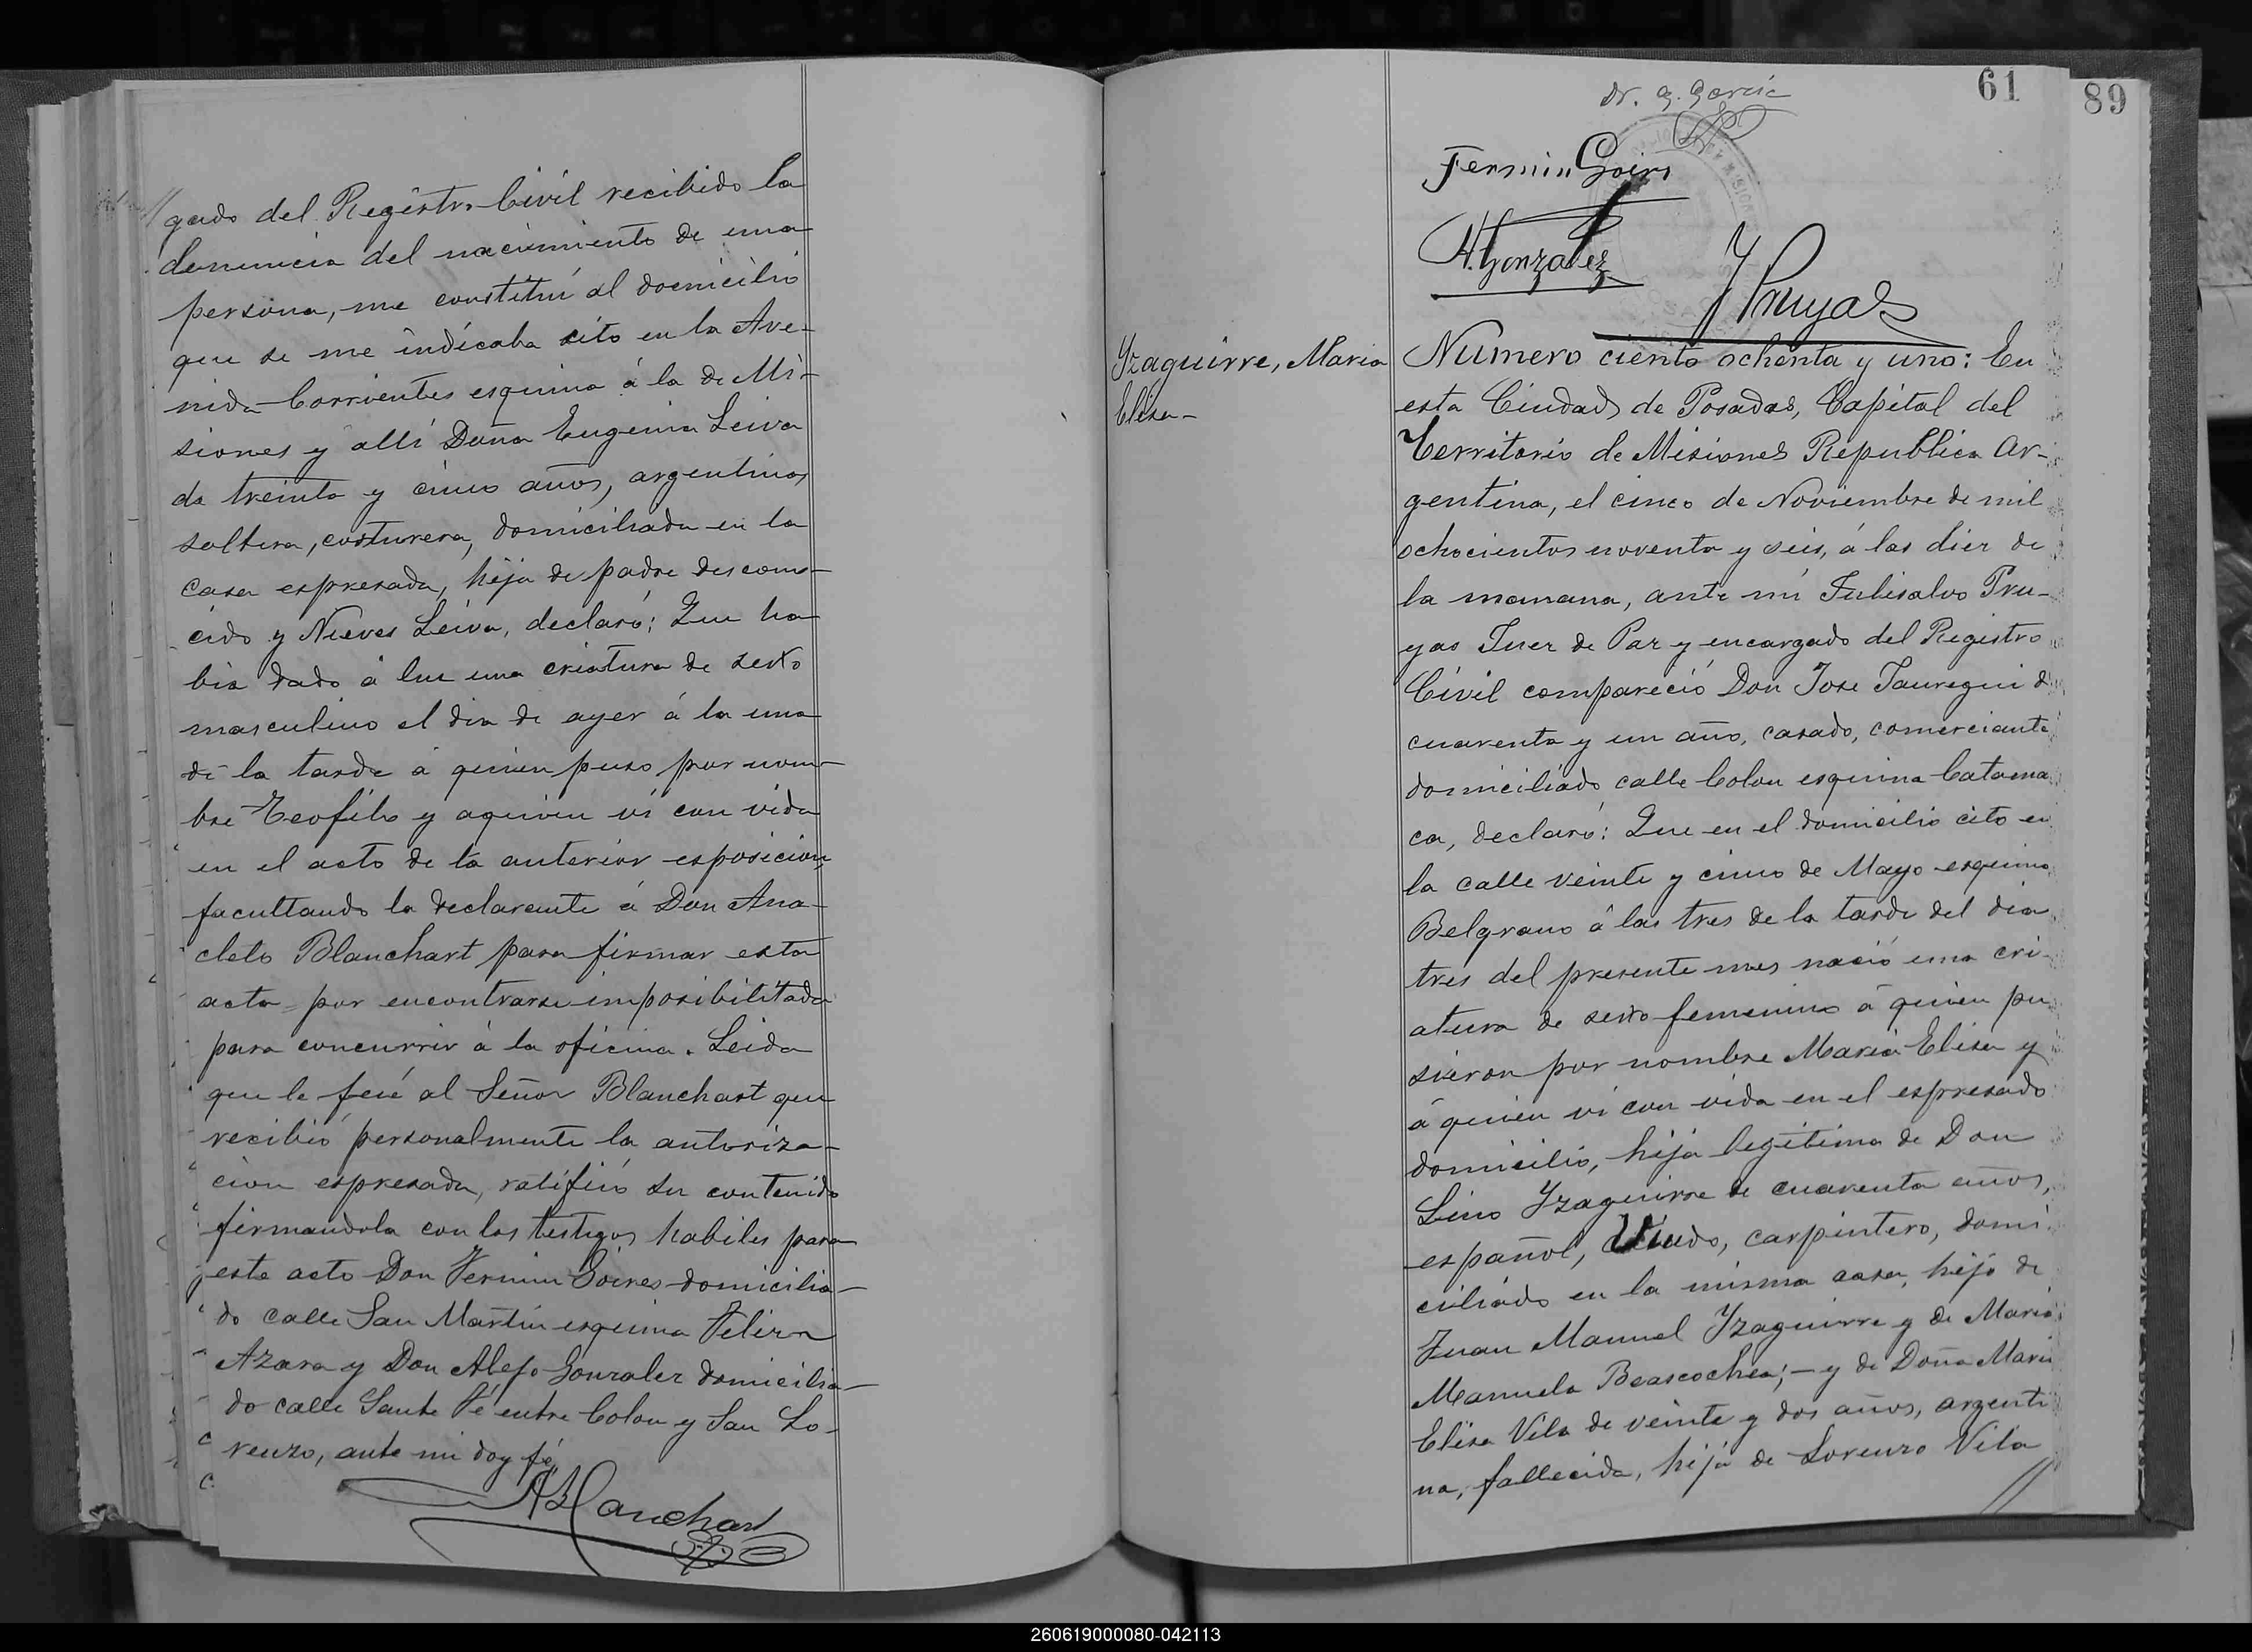 gado del Registro Civil recibido la
denuncia del nacimiento de una
persona, me constituí al domicilio
que se me indicaba sito en la Ave-
nida Corrientes esquina á la de Mi-
siones y allí Doña Eugenia Leiva
de treinta y cinco años, argentina,
soltera, costurera, domiciliada en la
casa espresada, hija de padre descono-
cido y Nieves Leiva, declaró: Que ha
bia dado á luz una criatura de sexo
masculino el dia de ayer á la una
de la tarde á quien puso por nom-
bre Teofilo y aquien ví con vida
en el acto de la anterior esposicion,
facultando la declarante á Don Ana-
cleto Blanchart para firmar esta
acta por encontrarse imposibilitada
para concurrir á la oficina. Leida
que le fué al Señor Blanchart que
recibió personalmente la autoriza-
cion espresada, ratificó su contenido
firmandola con los testigos habiles para
este acto Don Fermin Goires domicilia-
do calle San Martín esquina Felix
Azara y Don Alejo Gonzalez domicilia-
do calle Santa Fé entre Colon y San Lo-
renzo, ante mi doy fé,
ABlanchart
61
89
Dr. G. Garcia
Fermin Goires
A. Gonzalez
JPruyas
Yzaguirre, Maria
Elisa-
Número ciento ochenta y uno: En
esta Ciudad de Posadas, Capital del
Territorio de Misiones Republica Ar-
gentina, el cinco de Noviembre de mil
ochocientos noventa y seis, á las diez de
la manana, ante mí Julisalvo Pru-
yas Juez de Paz y encargado del Registro
Civil compareció Don Jose Jauregui d
cuarenta y un año, casado, comerciante
domiciliado calle Colon esquina Catama
ca, declaró: Que en el domicilio cito en
la calle veinte y cinco de Mayo esquina
Belgrano á las tres de la tarde del dia
tres del presente mes nació una cri-
atura de sexo femenino á quien pu
sieron por nombre Maria Elisa y
á quien ví con vida en el espresado
domicilio, hija legítima de Don
Lino Yzaguirre de cuarenta años,
español, Viudo, carpintero, domi
ciliado en la misma casa, hijo de
Juan Manuel Yzaguirre y de Maria
Manuela Beascochea; - y de Doña Maria
Elisa Vila de veinte y dos años, argenti
na, fallecida, hija de Lorenzo Vila
260619000080-042113